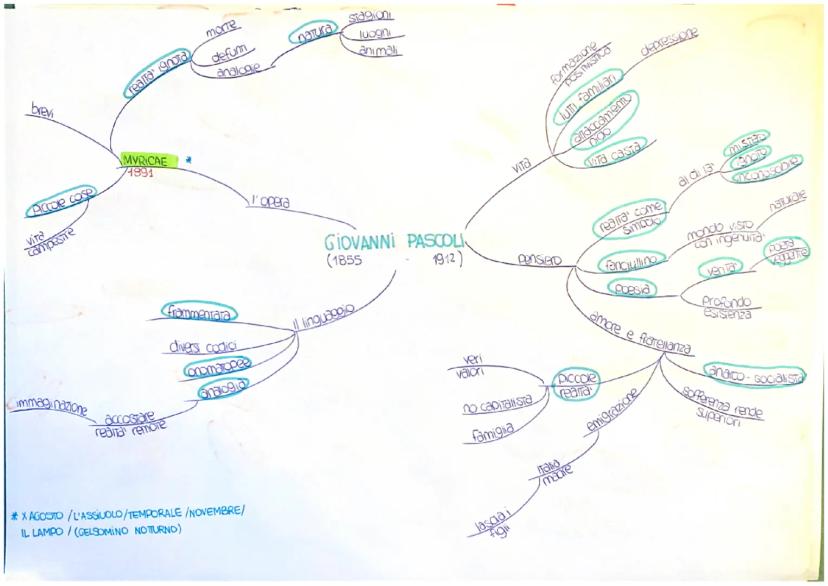 GIOVANNI PASCOLI
(1855 - 1912)
l'opera
MYRICAE *
1891
brevi
piccole cose
vita
campestre
realtà ignota
morte
defunti
analogie
natura
stagioni
luoghi
animali
il linguaggio
frammentata
diversi codici
onomatopee
analogia
accostare
realtà remote
immaginazione
vita
formazione
positivistica
lutti familiari
depressione
attaccamento
nido
vita casta
pensiero
realtà come
simbolo
al di là
mistero
ignoto
inconoscibile
fanciullino
mondo visto
con ingenuità
naturale
poesia
verità
poeta
veggente
profondo
esistenza
amore e fratellanza
anarco-socialista
sofferenza rende
superiori
piccole
realtà
veri
valori
no capitalista
famiglia
emigrazione
Italia
madre
lascia i
figli
* X AGOSTO / L'ASSIUOLO / TEMPORALE / NOVEMBRE /
IL LAMPO / (GELSOMINO NOTTURNO)